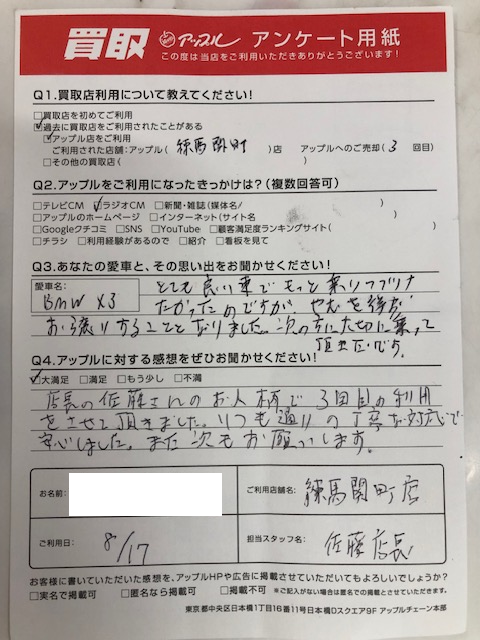 買取 アップル アンケート用紙
この度は当店をご利用いただきありがとうございます!
Q1.買取店利用について教えてください!
□買取店を初めてご利用
☑過去に買取店をご利用されたことがある
☑アップル店をご利用
ご利用された店舗:アップル( 練馬関町 )店 アップルへのご売却( 3 回目)
□その他の買取店( )
Q2.アップルをご利用になったきっかけは?(複数回答可)
□テレビCM ☑ラジオCM □新聞・雑誌(媒体名/ )
□アップルのホームページ □インターネット(サイト名 )
□Googleクチコミ □SNS □YouTube □顧客満足度ランキングサイト( )
□チラシ □利用経験があるので □紹介 □看板を見て
Q3.あなたの愛車と、その思い出をお聞かせください!
愛車名: BMW X3
とても良い車でもっと乗りつづけ
たかったのですが、やむを得ず
お譲りすることとなりました。次の方に大切に乗って
頂きたいです。
Q4.アップルに対する感想をぜひお聞かせください!
☑大満足 □満足 □もう少し □不満
店長の佐藤さんのお人柄で3回目の利用
をさせて頂きました。いつも通りの丁寧な対応で
安心しました。また次もお願いします。
お名前: ご利用店舗名: 練馬関町店
ご利用日: 8/17 担当スタッフ名: 佐藤店長
お客様に書いていただいた感想を、アップルHPや広告に掲載させていただいてもよろしいでしょうか?
□実名で掲載可 □匿名なら掲載可 □掲載不可 ※ご記入がない場合は匿名での掲載とさせていただきます。
東京都中央区日本橋1丁目16番11号日本橋Dスクエア9F アップルチェーン本部